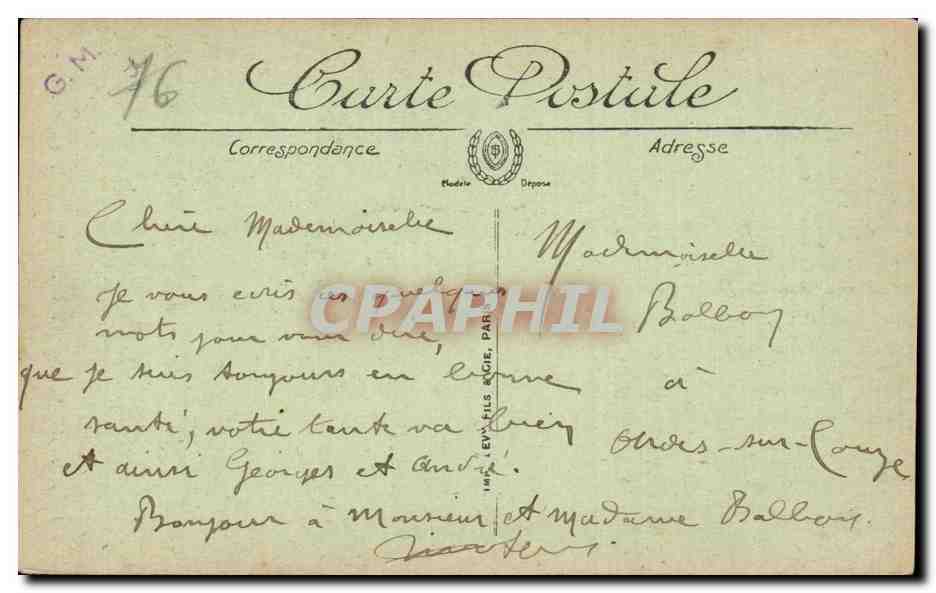 G. M.
76
Carte Postale
Correspondance
Adresse
Modèle Déposé
Chère Mademoiselle
Je vous ecris ces quelques
mots pour vous dire,
que je suis toujours en bonne
santé, votre tante va bien
et ainsi Georges et André.
Bonjour à Monsieur et Madame Balboy.
Mademoiselle
Balboy
à
sur-Couze
IMP. LEVY FILS & CIE, PARIS
CPAPHIL